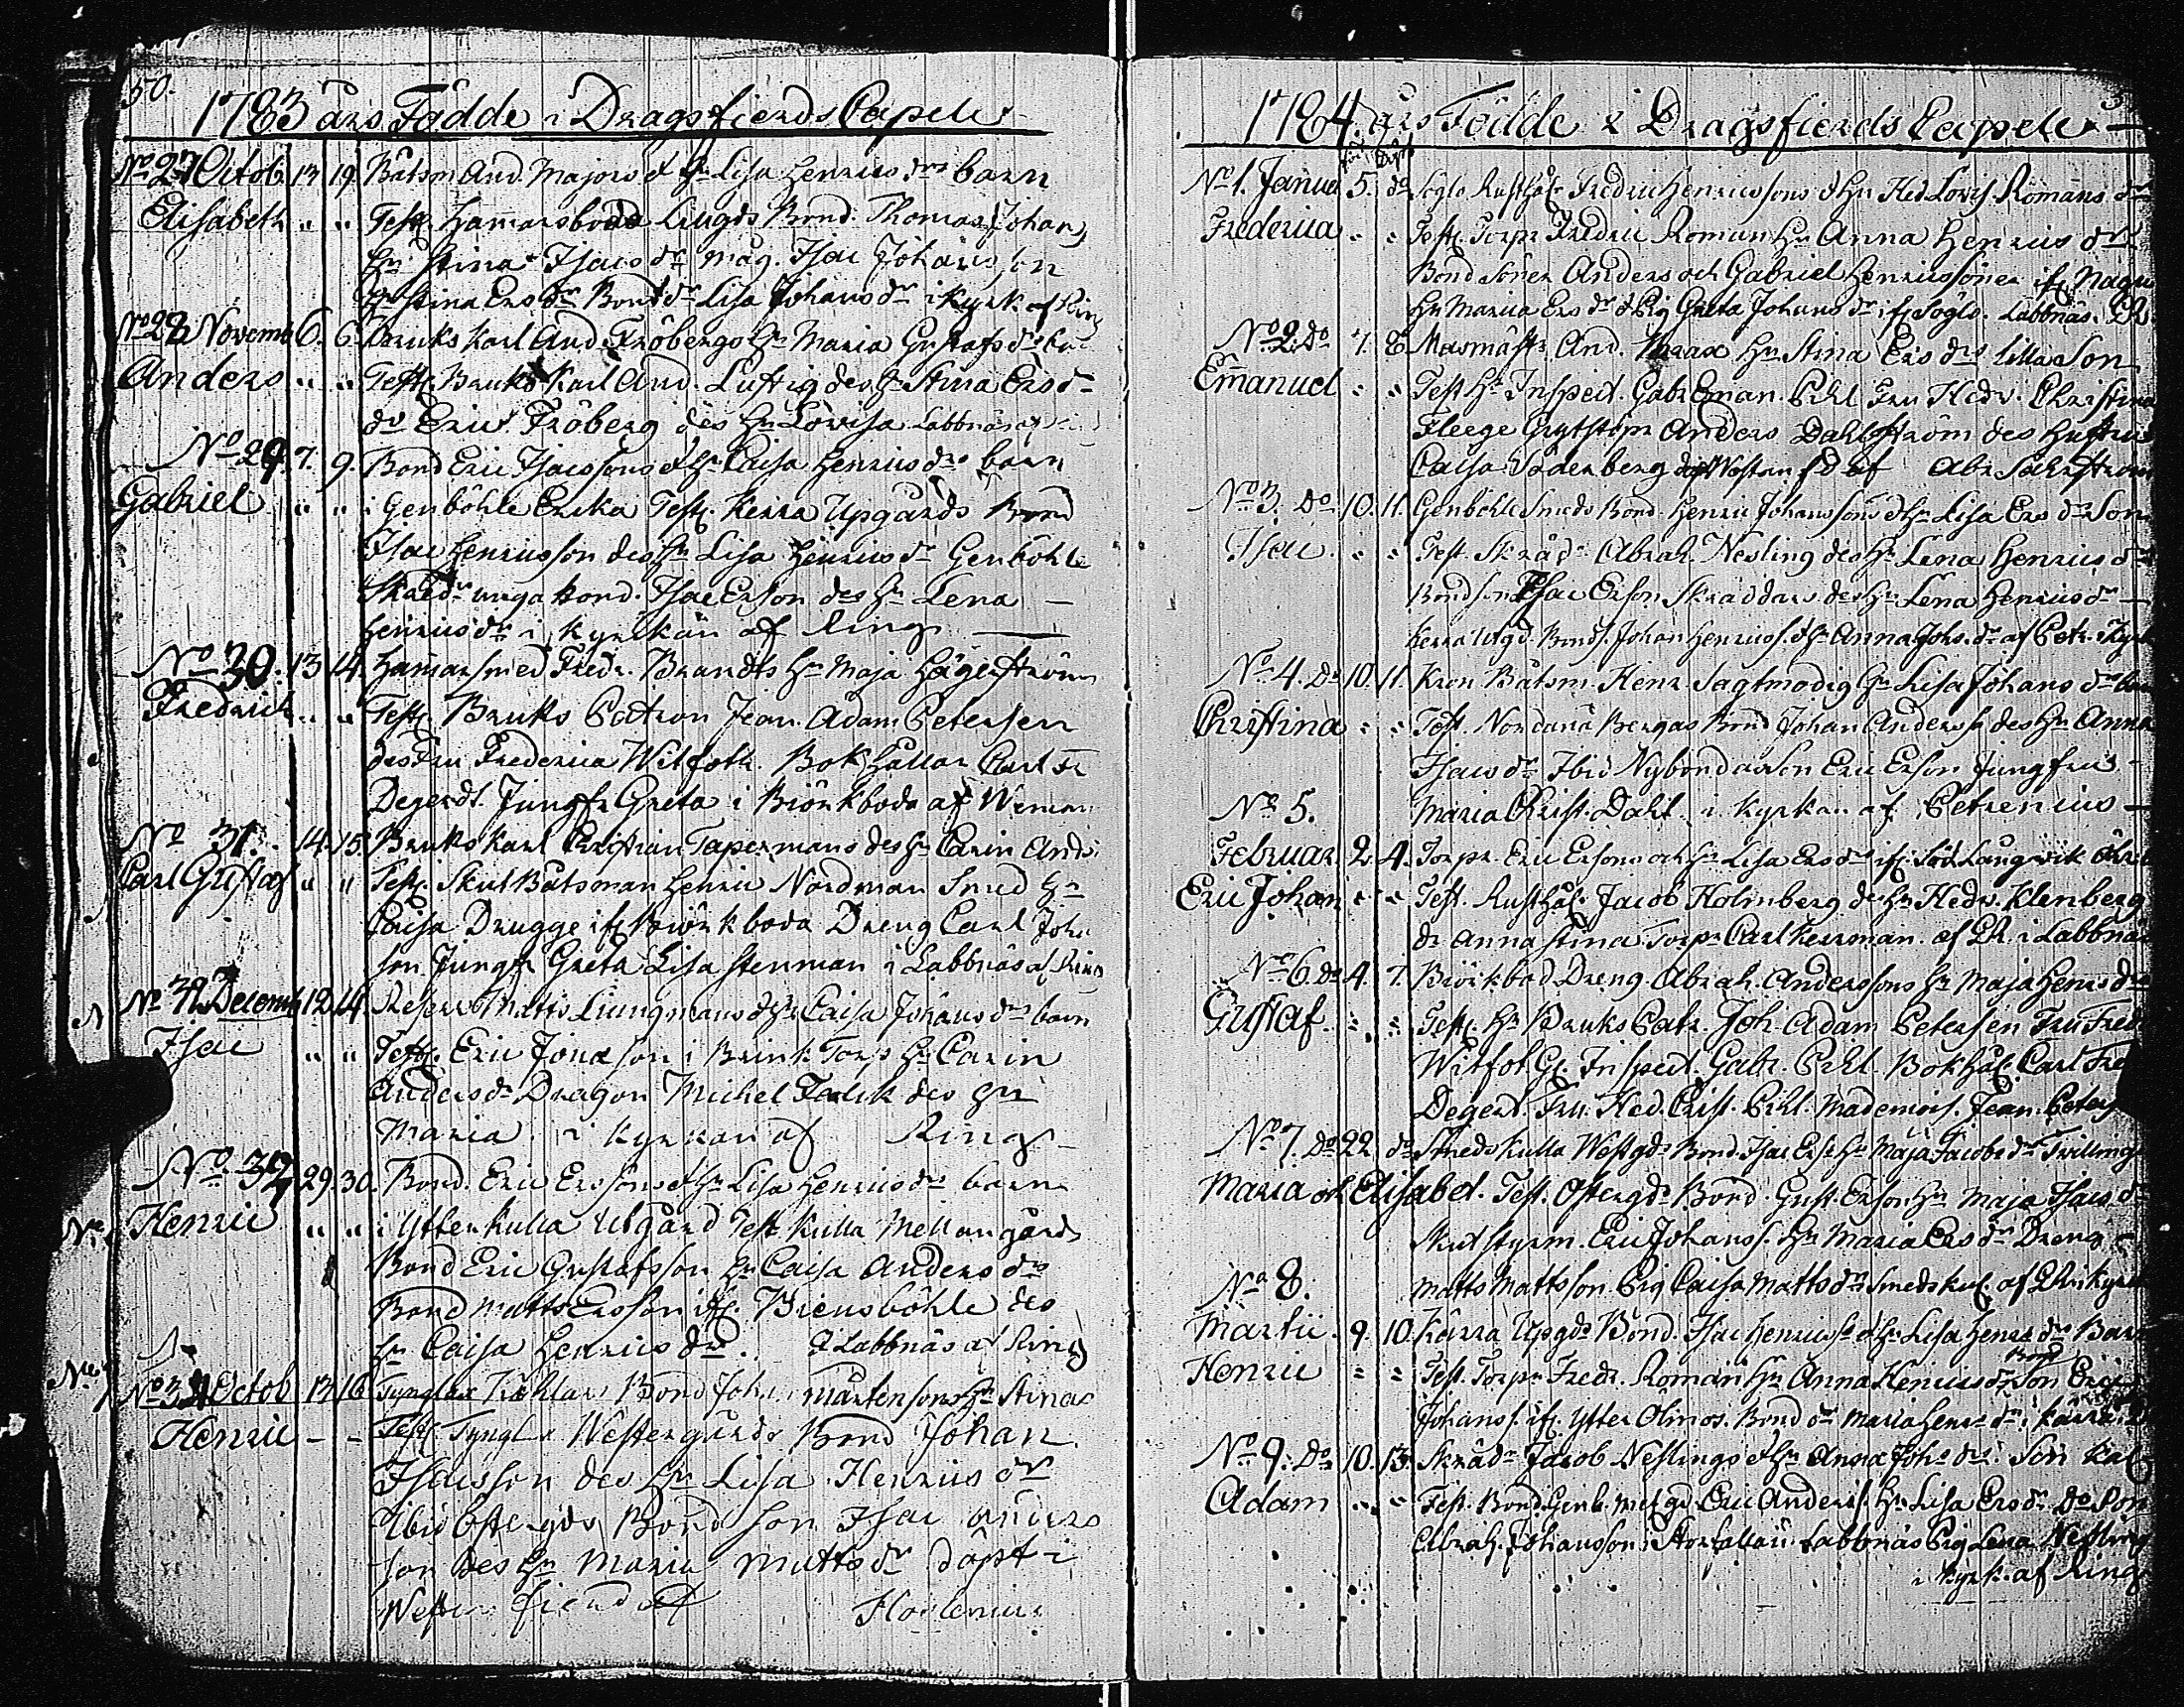 50.
1783 års Födde i Dragsfierds Capele
No 27 Octob. 13 19. Båtsm And. Majors & Hu Lisa Henrics drs barn
Elisabeth " " Test. Hamarsboda Bond. Thomas Johans
Hu Stina Isacs dr måg. Isac Johans son
Hu Stina Ers dr Bond dr Lisa Johans dr i kyrk. af Ring
No 28 Novemb 6. 6. Bruks Karl And. Fröbergs Hu Maria Gustafs dr
Anders " " Test. Bruks Karl And. Luftig des Hu Stina Ers dr
do Eric Fröberg des Hu Lovisa Labbnäs
No 29. 7. 9. Bond Eric Isacssons & Hu Caisa Henrics drs barn
Gabriel " " i Genböhle Test. Kerra Upgårds Bond
Isac Henricsson des Hu Lisa Henrics dr Genböhle
unga Bond. Isac Erson des Hu Lena —
Henrics dr i kyrkan af Ring
No 30. 13 14. Hamarsmed Fredr. Brandts Hu Maja Hägerström
Fredrich " " Test. Bruks Patron Jean Adam Petersen
des Fru Frederica Witfoth. Bokhållar Carl Fr
Degerdt. Jungfr Greta i Biörkboda af Weman
No 31. 14. 15. Bruks karl Christian Tapermans des Hu Carin Ands
Carl Gustaf " " Test. Skut Båtsman Henric Nordman Smed Hu
Caisa Drugge if Biörkboda Dreng Carl Johs
son Jungfr Greta Lisa Stenman i Labbnäs af Ring
Decemb 12 14. Matts Liungmans & Hu Caisa Johans drs barn
Isac " " Test. Eric Jonasson i Brink Torp Hu Carin
Anders dr Dragon Michel Falck des Hu
Maria i kyrkan af Ring
No 29. 30. Bond. Eric Erssons & Hu Lisa Henrics drs barn
Henric " " i Ytterkulla Utgård Test Kulla Mellangårds
Bond Eric Gustafsson Hu Caisa Anders dr
Bond Matts Ersson if. Biensböhle des
Hu Caisa Henrics dr. Labbnäs af Ring
Octob 13 16 Bond Joh. Mårtensons Hu Stinas
Henric - - Test. Westergårds Bond Johan
Isacsson des Hu Lisa Henrics dr
Ibid Östergds Bond son Isac Anders
son des Hu Maria Matts dr döpt i
Westan fierd af
1784. års Födde i Dragsfierds Capele —
No 1. Janua. 5. do Söglo Rusthål. Fredric Henricssons & Hu Hed Lovis. Romans dr
Frederica " " Test. Torpr Fredric Roman Hu Anna Henrics dr
Bond Söner Anders och Gabriel Henricssöner if Nagu
Hu Marica Ers dr & Pig Greta Johans dr if Söglo. Labbnäs.
No 2. Do 7. 8. Masmästr And. Hu Stina Ers drs lilla Son
Emanuel " " Test Hr Inspect. Gabr Eman. Pihl Fru Hedv. Christina
Fleege Anders Dahlström des Hustru
Caisa Söderberg
No 3. Do 10. 11. Genböhle Smeds Bond. Henric Johanssons & Hu Lisa Ers dr Son
Isac " " Test. Skräd. Abrah. Nesling des Hu Lena Henrics dr
Bondson Isac Erson Skräddars des Hu Lena Henrics dr
Kerra Utgd Bonds. Johan Henrics. & Hu Anna Johs. dr af Petr. i kyrk
No 4. Do 10. 11. Kron Båtsm. Henr. Sagtmodig Hu Lisa Johans dr
Christina " " Test. Nordanå Bergas Bond Johan Anders. des Hu Anna
Isacs dr Ibid Nybondasson Eric Erson Jungfru —
No 5. Maria Christ. Dahl. i kyrkan af Petrenius —
Februar. 2. 4. Torpr. Eric Ersons och Hu Lisa Ers dr if Söd. Långwik
Eric Johan " " Test. Rusthål. Jacob Holmberg des Hu Hedv. Klenberg
dr Anna Stina Torpr Carl Kerrman. i Labbnäs
No 6. Do 4. 7. Biörkbod Dreng Abrah. Anderssons Hu Maja Henrs drs
Gustaf. " " Test. Hr Bruks Patr. Joh. Adam Petersen Fru Fred
Witfot Inspect. Gabr. Pihl. Bokhål. Carl Fre
Degerd. Fru Hed. Christ. Pihl. Mademois. Jean. Peters
No 7. Do 22 do Smeds Kulla Westgds Bond. Isac Ers. Hu Maja Jacobs drs Twillingar
Maria och Elisabet. Test. Östergds Bond. Gust. Erson Hu Maja Isacs dr
Skutstyrm. Eric Johans. Hu Maria Ers dr Dreng —
No 8. Matts Mattsson Pig Caisa Matts dr Smedskul. af
Martii. 9. 10. Kärra Upgds Bond. Isac Henrics. & Hu Lisa Henrs drs Barn
Henric " " Test. Torpr Fredr. Roman Hu Anna Henrics dr Bond Son Eric
Johans. if. Ytter Ölmos. Bond dr Maria Henrs dr i Kärra.
No 9. Do 10. 13. Skräd. Jacob Neslings & Hu Anna Johs drs Son
Adam " " Test. Bond. Genb. Melgd. Eric Anders. Hu Lisa Ers dr Do Son
Abrah. Johansson i Labbnäs Pig Lena Nesling
i kyrk. af Ring